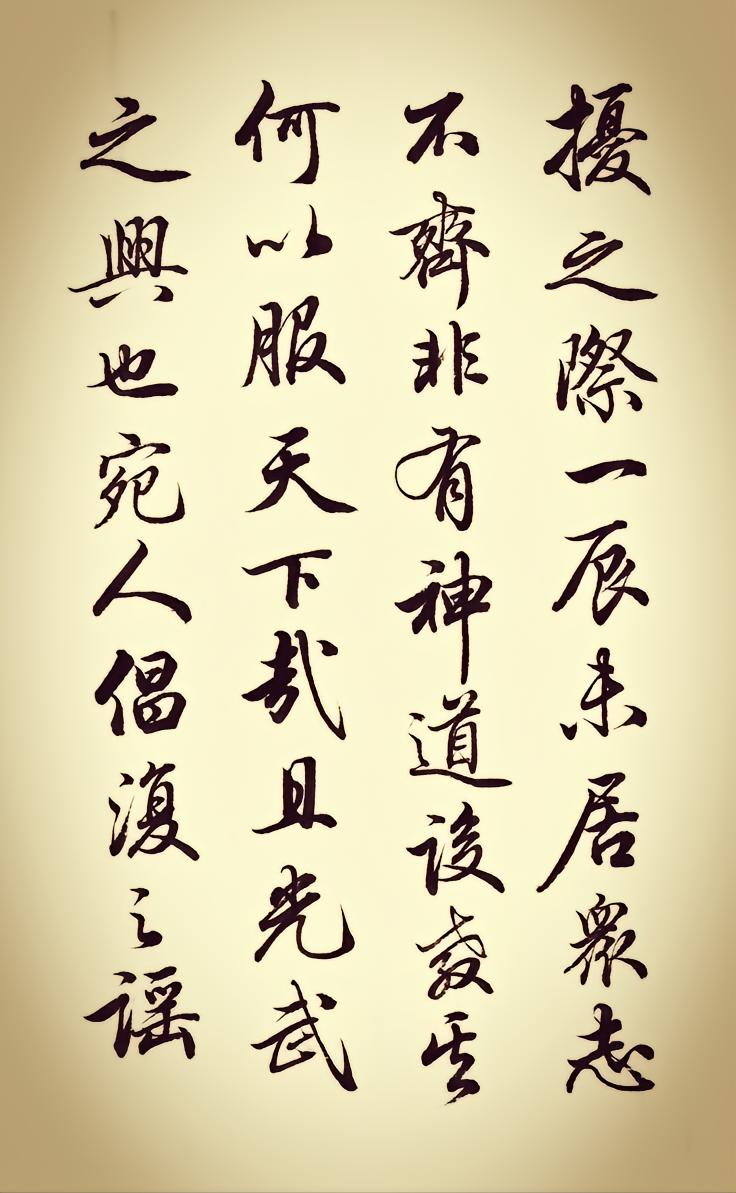 擾之際一辰未居眾志
不齊非有神道設教其
何以服天下哉且光武
之興也宛人倡復之謡